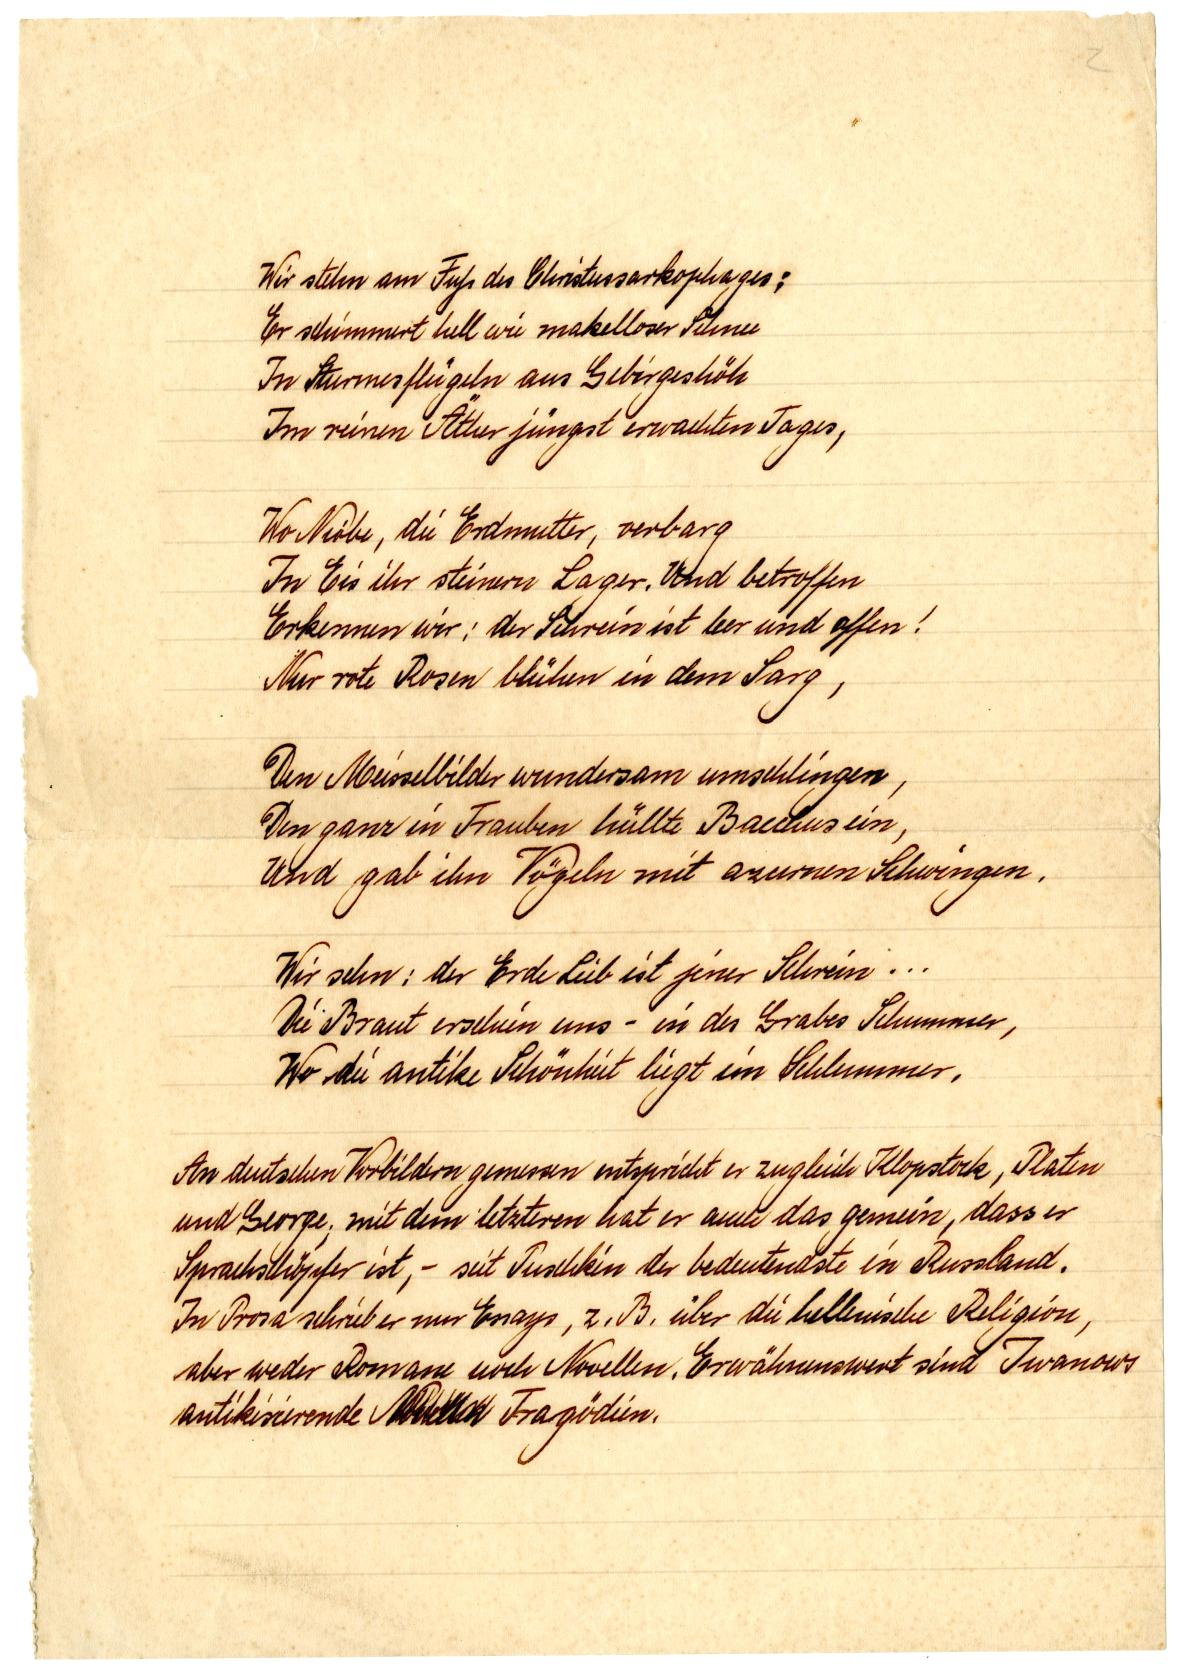 2
Wir stehn am Fuss des Christussarkophages;
Er schimmert hell wie makelloser Schnee
In Sturmesflügeln aus Gebirgeshöh
Im reinen Äther jüngst erwachten Tages,
Wo Niobe, die Erdmutter, verbarg
In Eis ihr steinern Lager. Und betroffen
Erkennen wir: der Schrein ist leer und offen!
Nur rote Rosen blühen in dem Sarg,
Den Meisselbilder wundersam umschlingen,
Den ganz in Trauben hüllte Bacchus ein,
Und gab ihn Vögeln mit azurnen Schwingen.
Wir sehn: der Erde Leib ist jener Schrein...
Die Braut erschien uns - in des Grabes Schummer,
Wo die antike Schönheit liegt im Schlummer.
An deutschen Vorbildern gemessen entspricht er zugleich Klopstock, Platen
und George; mit dem letzteren hat er auch das gemein, dass er
Sprachschöpfer ist, - seit Puschkin der bedeutendste in Russland.
In Prosa schrieb er nur Essays, z. B. über die hellenische Religion,
aber weder Romane noch Novellen. Erwähnenswert sind Iwanows
antikisierende Tragödien.